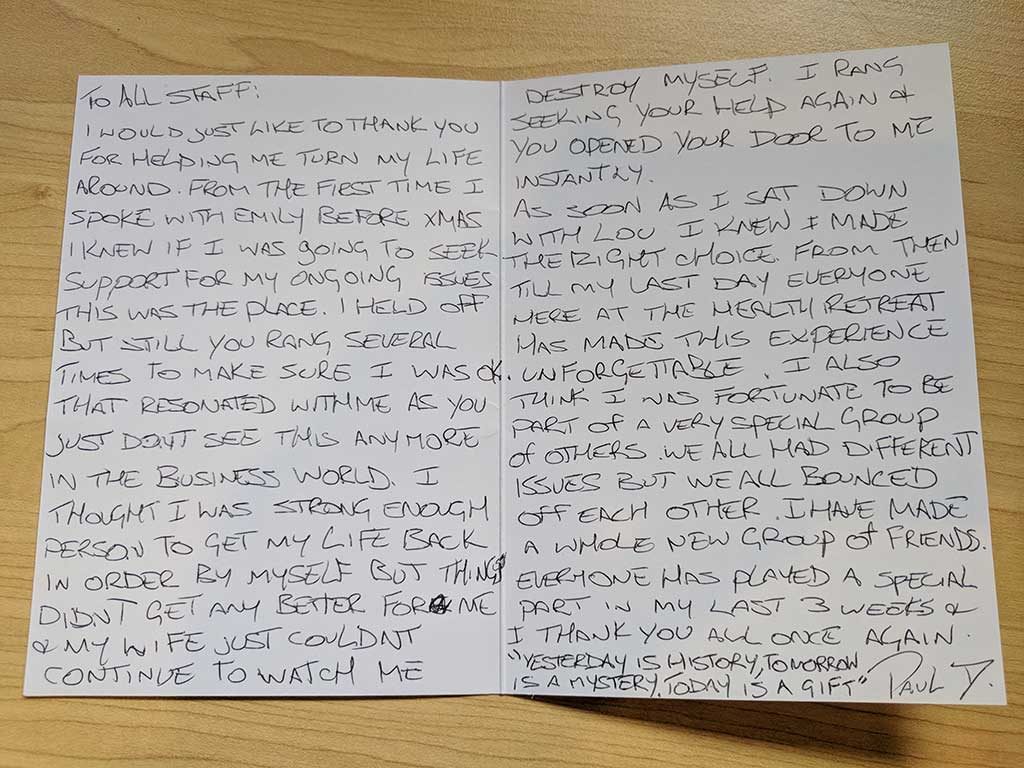 TO ALL STAFF:
I WOULD JUST LIKE TO THANK YOU
FOR HELPING ME TURN MY LIFE
AROUND. FROM THE FIRST TIME I
SPOKE WITH EMILY BEFORE XMAS
I KNEW IF I WAS GOING TO SEEK
SUPPORT FOR MY ONGOING ISSUES
THIS WAS THE PLACE. I HELD OFF
BUT STILL YOU RANG SEVERAL
TIMES TO MAKE SURE I WAS OK.
THAT RESONATED WITH ME AS YOU
JUST DON'T SEE THIS ANYMORE
IN THE BUSINESS WORLD. I
THOUGHT I WAS STRONG ENOUGH
PERSON TO GET MY LIFE BACK
IN ORDER BY MYSELF BUT THINGS
DIDNT GET ANY BETTER FOR ME
& MY WIFE JUST COULDNT
CONTINUE TO WATCH ME
DESTROY MYSELF. I RANG
SEEKING YOUR HELP AGAIN &
YOU OPENED YOUR DOOR TO ME
INSTANTLY.
AS SOON AS I SAT DOWN
WITH LOU I KNEW I MADE
THE RIGHT CHOICE. FROM THEN
TILL MY LAST DAY EVERYONE
HERE AT THE HEALTH RETREAT
HAS MADE THIS EXPERIENCE
UNFORGETTABLE. I ALSO
THINK I WAS FORTUNATE TO BE
PART OF A VERY SPECIAL GROUP
OF OTHERS. WE ALL HAD DIFFERENT
ISSUES BUT WE ALL BOUNCED
OFF EACH OTHER. I HAVE MADE
A WHOLE NEW GROUP OF FRIENDS.
EVERYONE HAS PLAYED A SPECIAL
PART IN MY LAST 3 WEEKS &
I THANK YOU ALL ONCE AGAIN.
"YESTERDAY IS HISTORY, TOMORROW
IS A MYSTERY. TODAY IS A GIFT" PAUL T.